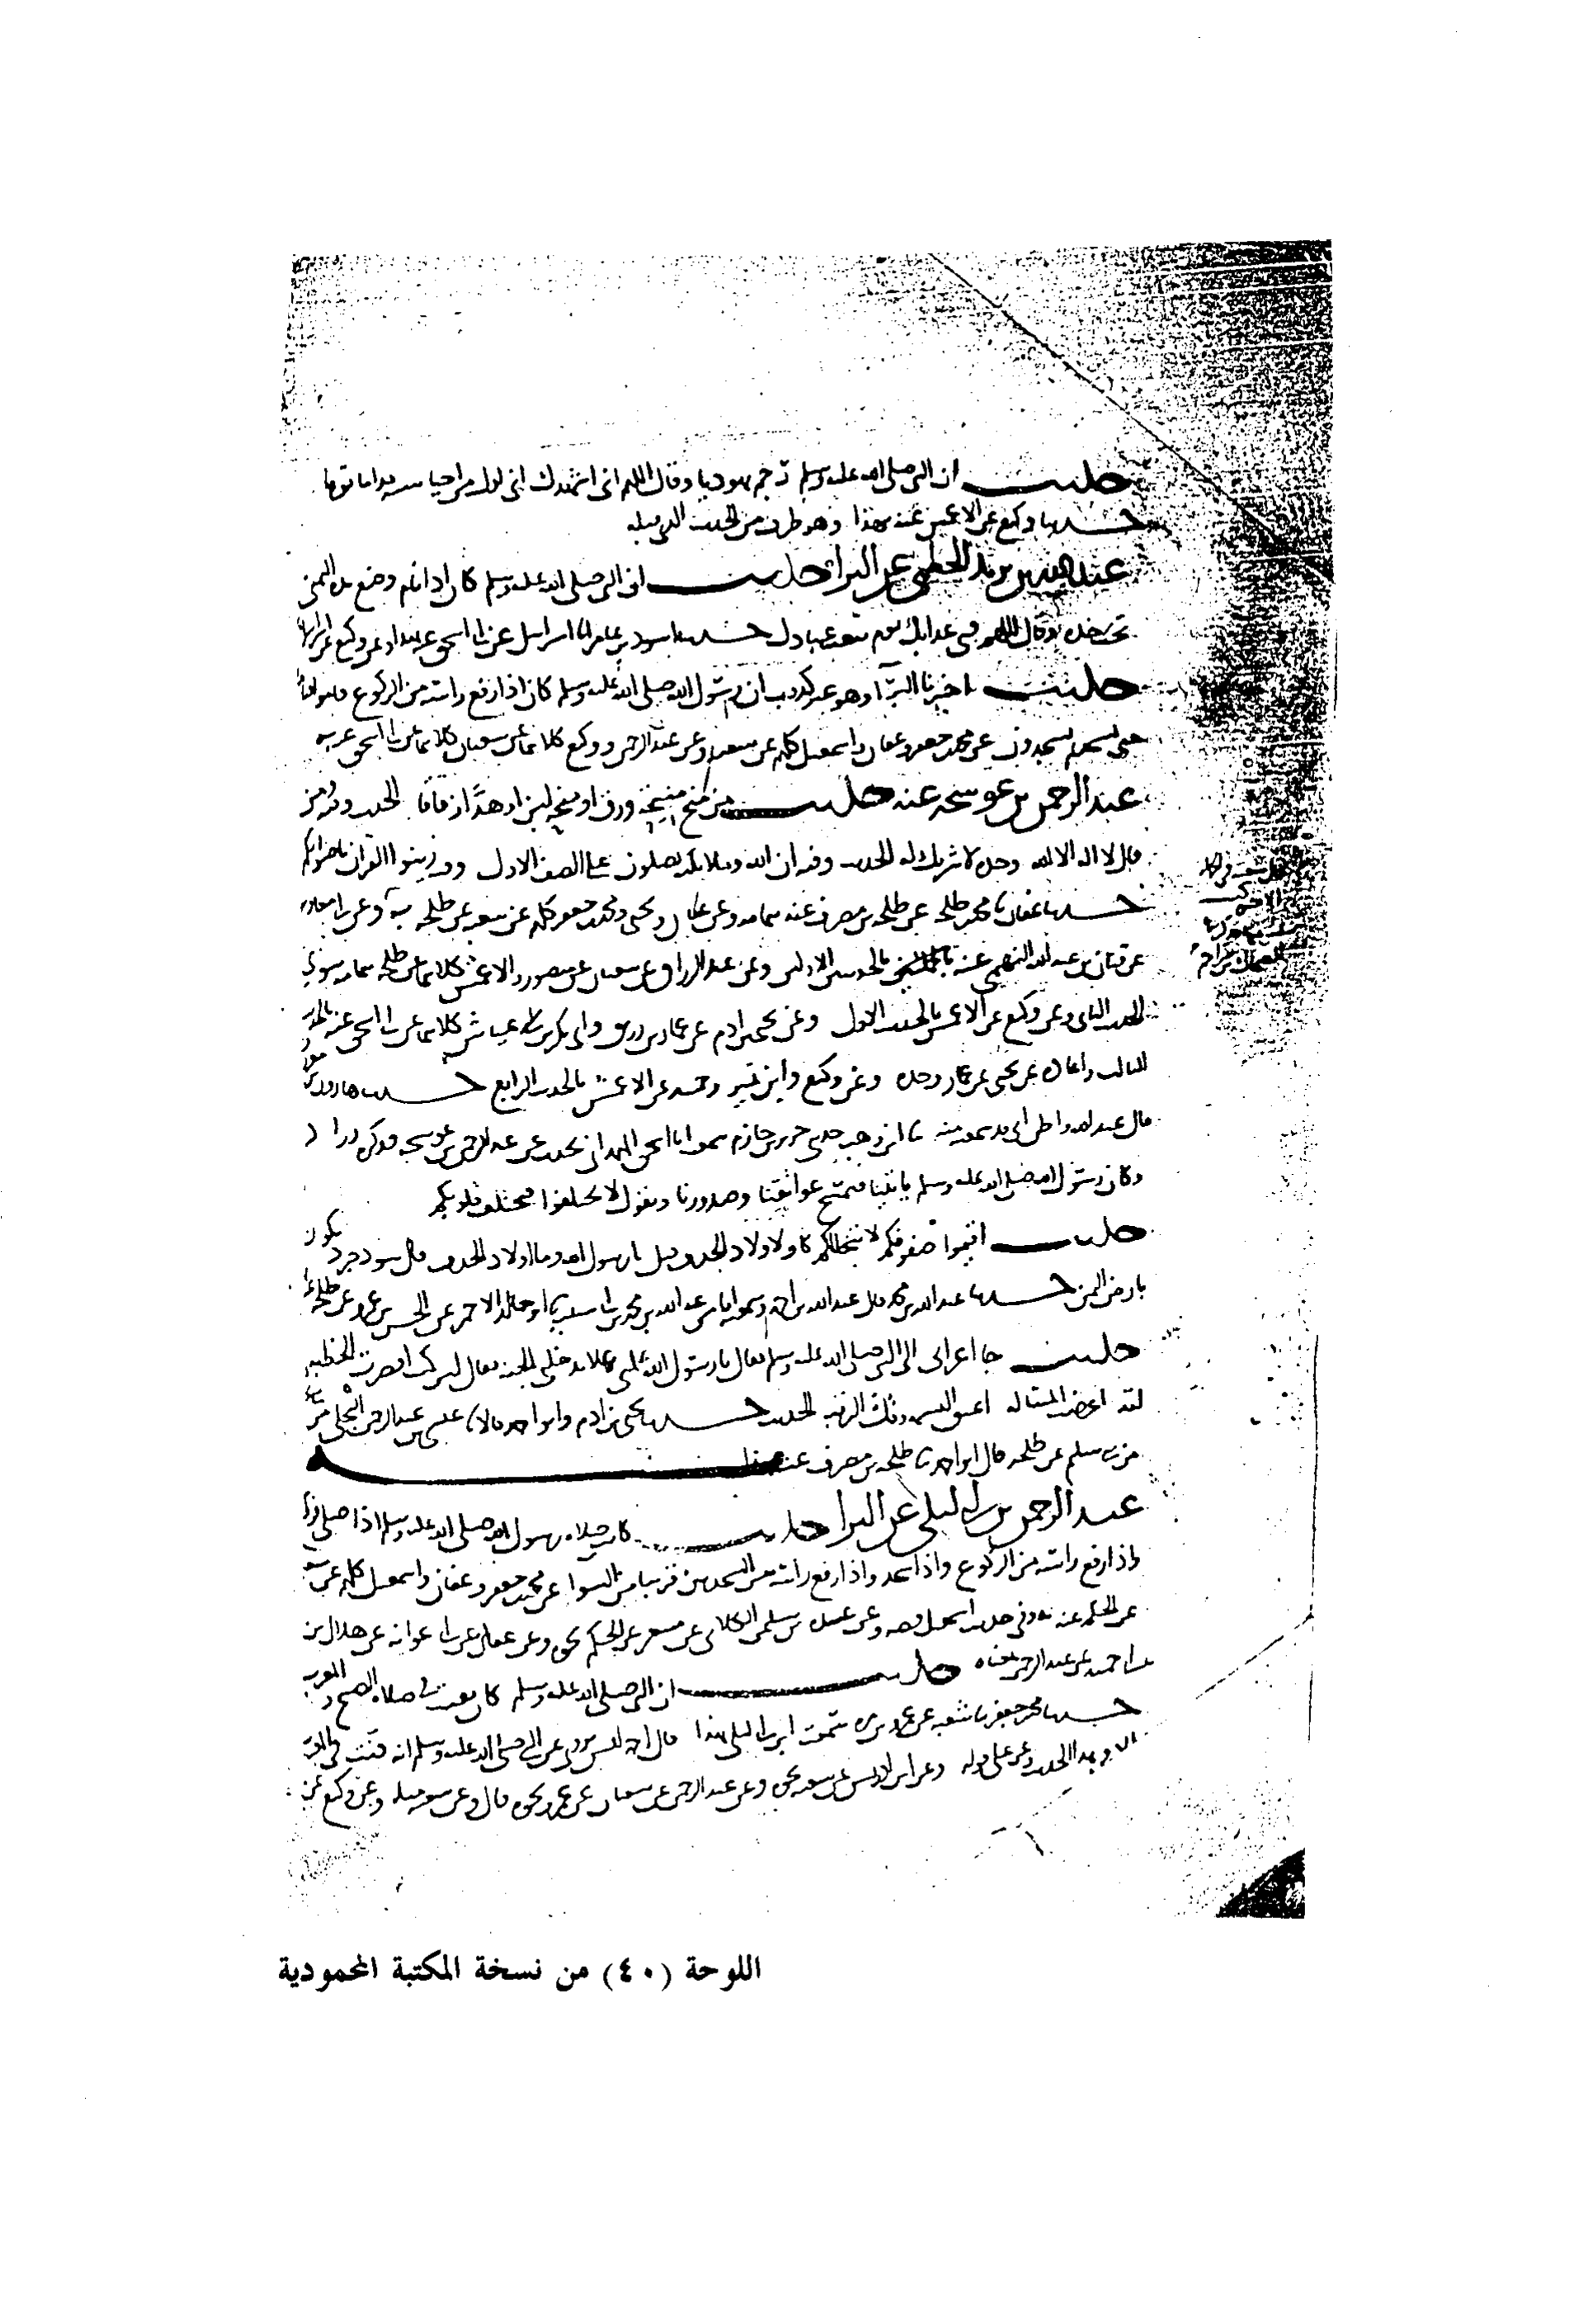 حديث ان النبي صلى الله عليه وسلم رجم يهوديا وقال اللهم اني اشهدك اني اول من احيا سنه قد اماتوها
حدثنا وكيع عن الاعمش عنه بهذا وهو طرف من الحديث الذي قبله
عبد الله بن يزيد الخطمي عن البراء حديث ان النبي صلى الله عليه وسلم كان اذا نام وضع يده اليمنى
تحت خده وقال اللهم قني عذابك يوم تبعث عبادك حدثنا اسود بن عامر انا اسرائيل عن ابي اسحق وعن وكيع عن اسرائيل
حديث اخبرنا البراء وهو غير كذوب ان رسول الله صلى الله عليه وسلم كان اذا رفع راسه من الركوع قاموا قياما
حتى يسجد ثم يسجدون عن محمد بن جعفر وعفان واسمعيل كلهم عن شعبة وعن عبد الرحمن ووكيع كلاهما عن سفيان كلاهما عن ابي اسحق عنه به
عبد الرحمن بن عوسجه عنه حديث من منح منيحة ورق او منيحة لبن او هدا زقاقا الحديث وفيه ومن
قال لا اله الا الله وحده لا شريك له الحديث وفيه ان الله وملائكته يصلون على الصف الاول وفيه زينوا القران باصواتكم
حدثنا عفان نا محمد بن طلحة عن طلحة بن مصرف عنه بتمامه وعن عفان ويحيى ومحمد بن جعفر كلهم عن شعبه عن طلحه به وعن ابي معاويه
عن قنان بن عبد الله النهمي عنه بالحديثين الاولين وعن عبد الرزاق عن سفيان عن منصور والاعمش كلاهما عن طلحه بتمامه سوى
الحديث الثاني وعن وكيع عن الاعمش بالحديث الاول وعن يحيى بن ادم عن عمار بن رزيق وابي بكر بن عياش كلاهما عن ابي اسحق عنه بالحديث
الثالث واعاده عن يحيى عن عمار وحده وعن وكيع وابن نمير عن الاعمش بالحديث الرابع حدثنا هارون بن معروف
قال عبد الله واظن اني قد سمعته منه نا ابن وهب حدثني جرير بن حازم سمعت ابا اسحق الهمداني يحدث عن عبد الرحمن بن عوسجه
وكان رسول الله صلى الله عليه وسلم ياتينا فيمسح عواتقنا وصدورنا ويقول لا تختلفوا فتختلف قلوبكم
حديث اقيموا صفوفكم لا يتخللكم كاولاد الحذف قيل يا رسول الله وما اولاد الحذف قال سود جرد تكون
بارض اليمن حدثنا عبد الله بن محمد قال عبد الله بن احمد وسمعته انا من عبد الله بن محمد بن ابي شيبة نا ابو خالد الاحمر عن الحسن بن عمرو عن طلحه
حديث جا اعرابي الى النبي صلى الله عليه وسلم فقال يا رسول الله علمني عملا يدخلني الجنه فقال لئن كنت اقصرت الخطبه
لقد اعرضت المسئله اعتق النسمه وفك الرقبه الحديث حدثنا يحيى بن ادم وابو احمد قالا نا عيسى بن عبد الرحمن البجلي من
من بني سليم عن طلحه قال ابو احمد نا طلحه بن مصرف عنه بهذا
عبد الرحمن بن ابي ليلى عن البراء حديث كانت صلاة رسول الله صلى الله عليه وسلم اذا صلى فركع
واذا رفع راسه من الركوع واذا سجد واذا رفع راسه من السجدتين قريبا من السوا عن محمد بن جعفر وعفان واسمعيل كلهم عن شعبه
عن الحكم عنه به وفي حديث اسمعيل قصه وعن عن مسعر عن الحكم نحوه وعن عفان عن ابي عوانه عن هلال بن
ابي حميد عن عبد الرحمن بمعناه حديث ان النبي صلى الله عليه وسلم كان يقنت في صلاة الصبح والمغرب
حدثنا محمد بن جعفر نا شعبه عن عمرو بن مره سمعت ابن ابي ليلى بهذا قال احمد ليس يروى عن النبي صلى الله عليه وسلم انه قنت في المغرب
الا في هذا الحديث وعن علي قوله وعن ابن ادريس عن شعبه نحوه وعن عبد الرحمن عن سفيان عن عمرو نحوه قال وعن شعبه مثله وعن وكيع عن
اللوحة (٤٠) من نسخة المكتبة المحمودية